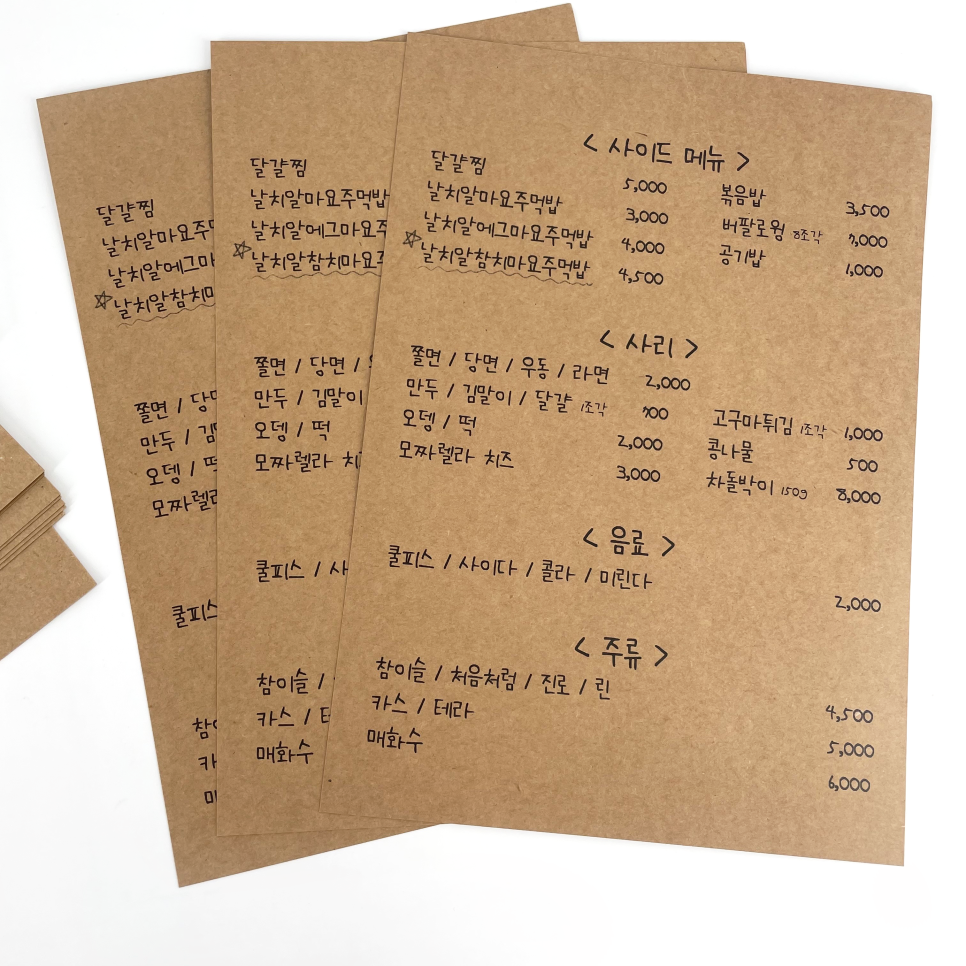 < 사이드 메뉴 >
달걀찜 5,000
날치알마요주먹밥 3,000
날치알에그마요주먹밥 4,000
☆날치알참치마요주먹밥 4,500
볶음밥 3,500
버팔로윙 8조각 7,000
공기밥 1,000
< 사리 >
쫄면 / 당면 / 우동 / 라면 2,000
만두 / 김말이 / 달걀 1조각 700
오뎅 / 떡 2,000
모짜렐라 치즈 3,000
고구마튀김 1조각 1,000
콩나물 500
차돌박이 150g 8,000
< 음료 >
쿨피스 / 사이다 / 콜라 / 미린다 2,000
< 주류 >
참이슬 / 처음처럼 / 진로 / 린 4,500
카스 / 테라 5,000
매화수 6,000
달걀찜
날치알마요주먹밥
날치알에그마요주
☆날치알참치마요주
쫄면 / 당면 /
만두 / 김말이
오뎅 / 떡
모짜렐라 치
쿨피스 / 사
참이슬 /
카스 / 테
매화수
달걀찜
날치알마요주
날치알에그마
☆날치알참치마
쫄면 / 당
만두 / 김
오뎅 /
모짜렐
쿨피스
참이
카